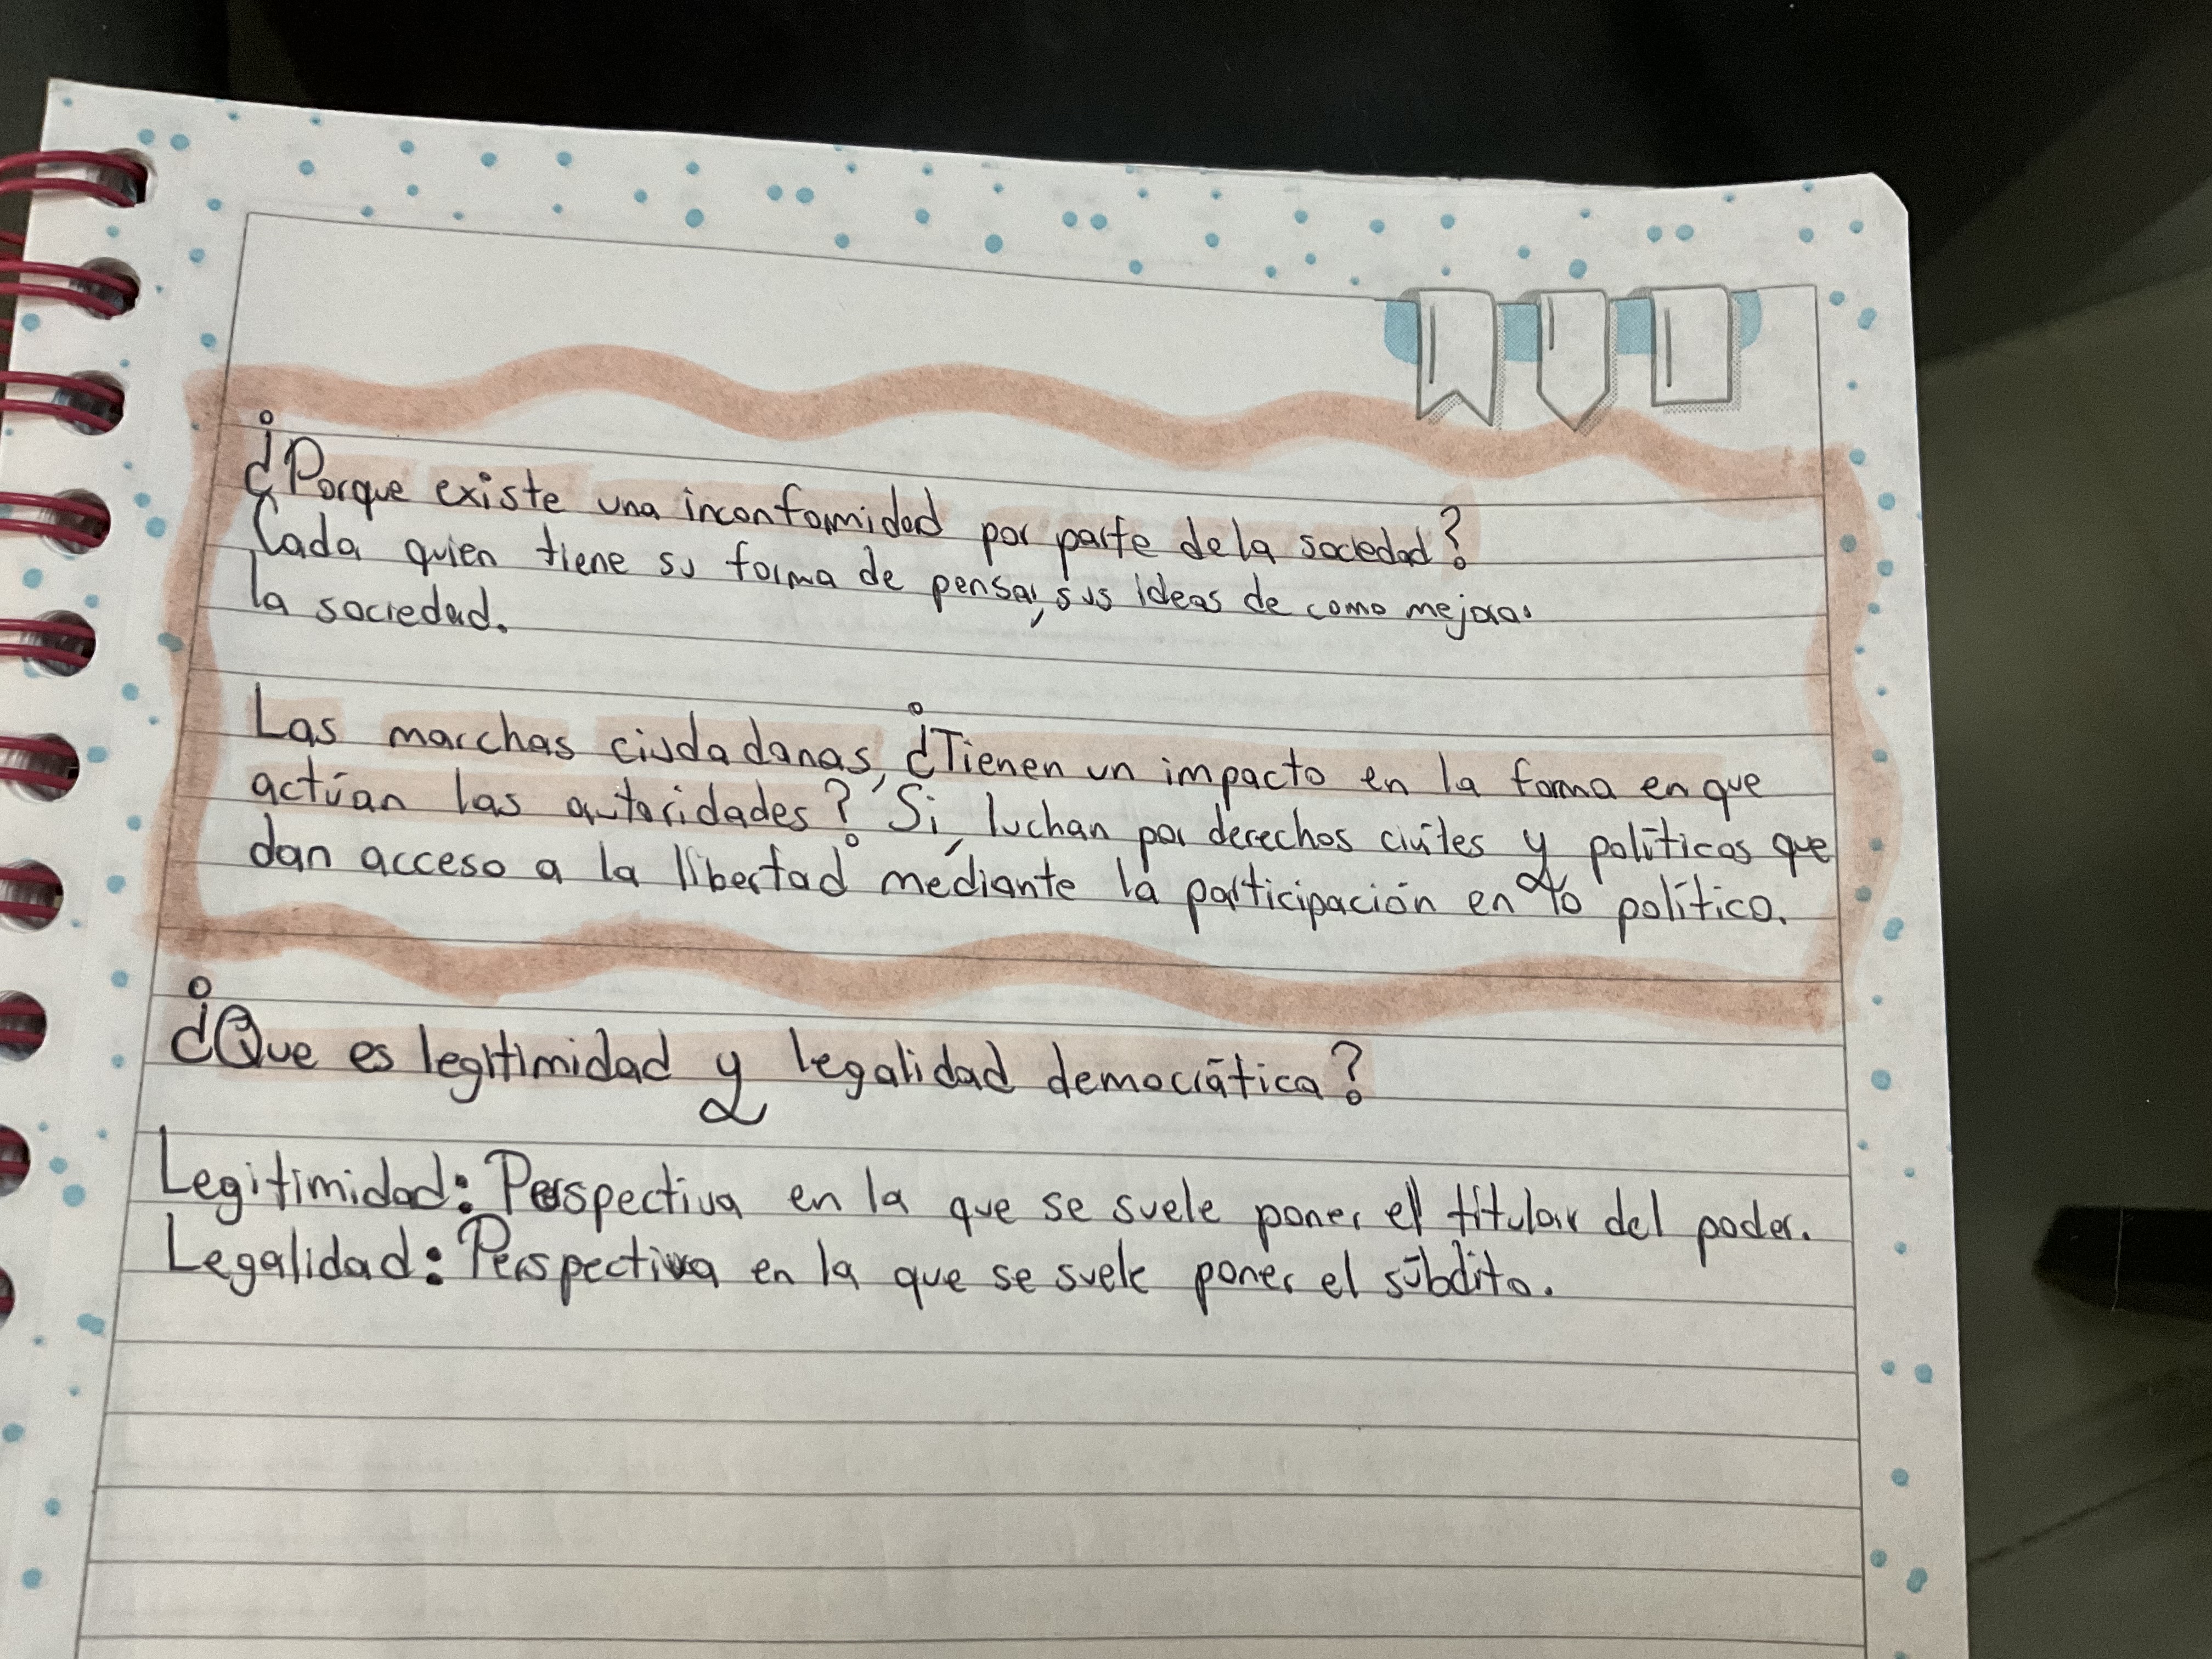 ¿Porque existe una inconformidad por parte de la sociedad?
Cada quien tiene su forma de pensar, sus ideas de como mejorar
la sociedad.
Las marchas ciudadanas, ¿Tienen un impacto en la forma en que
actúan las autoridades? Si, luchan por derechos civiles y políticos que
dan acceso a la libertad mediante la participación en lo político.
¿Que es legitimidad y legalidad democrática?
Legitimidad: Perspectiva en la que se suele poner el titular del poder.
Legalidad: Perspectiva en la que se suele poner el súbdito.